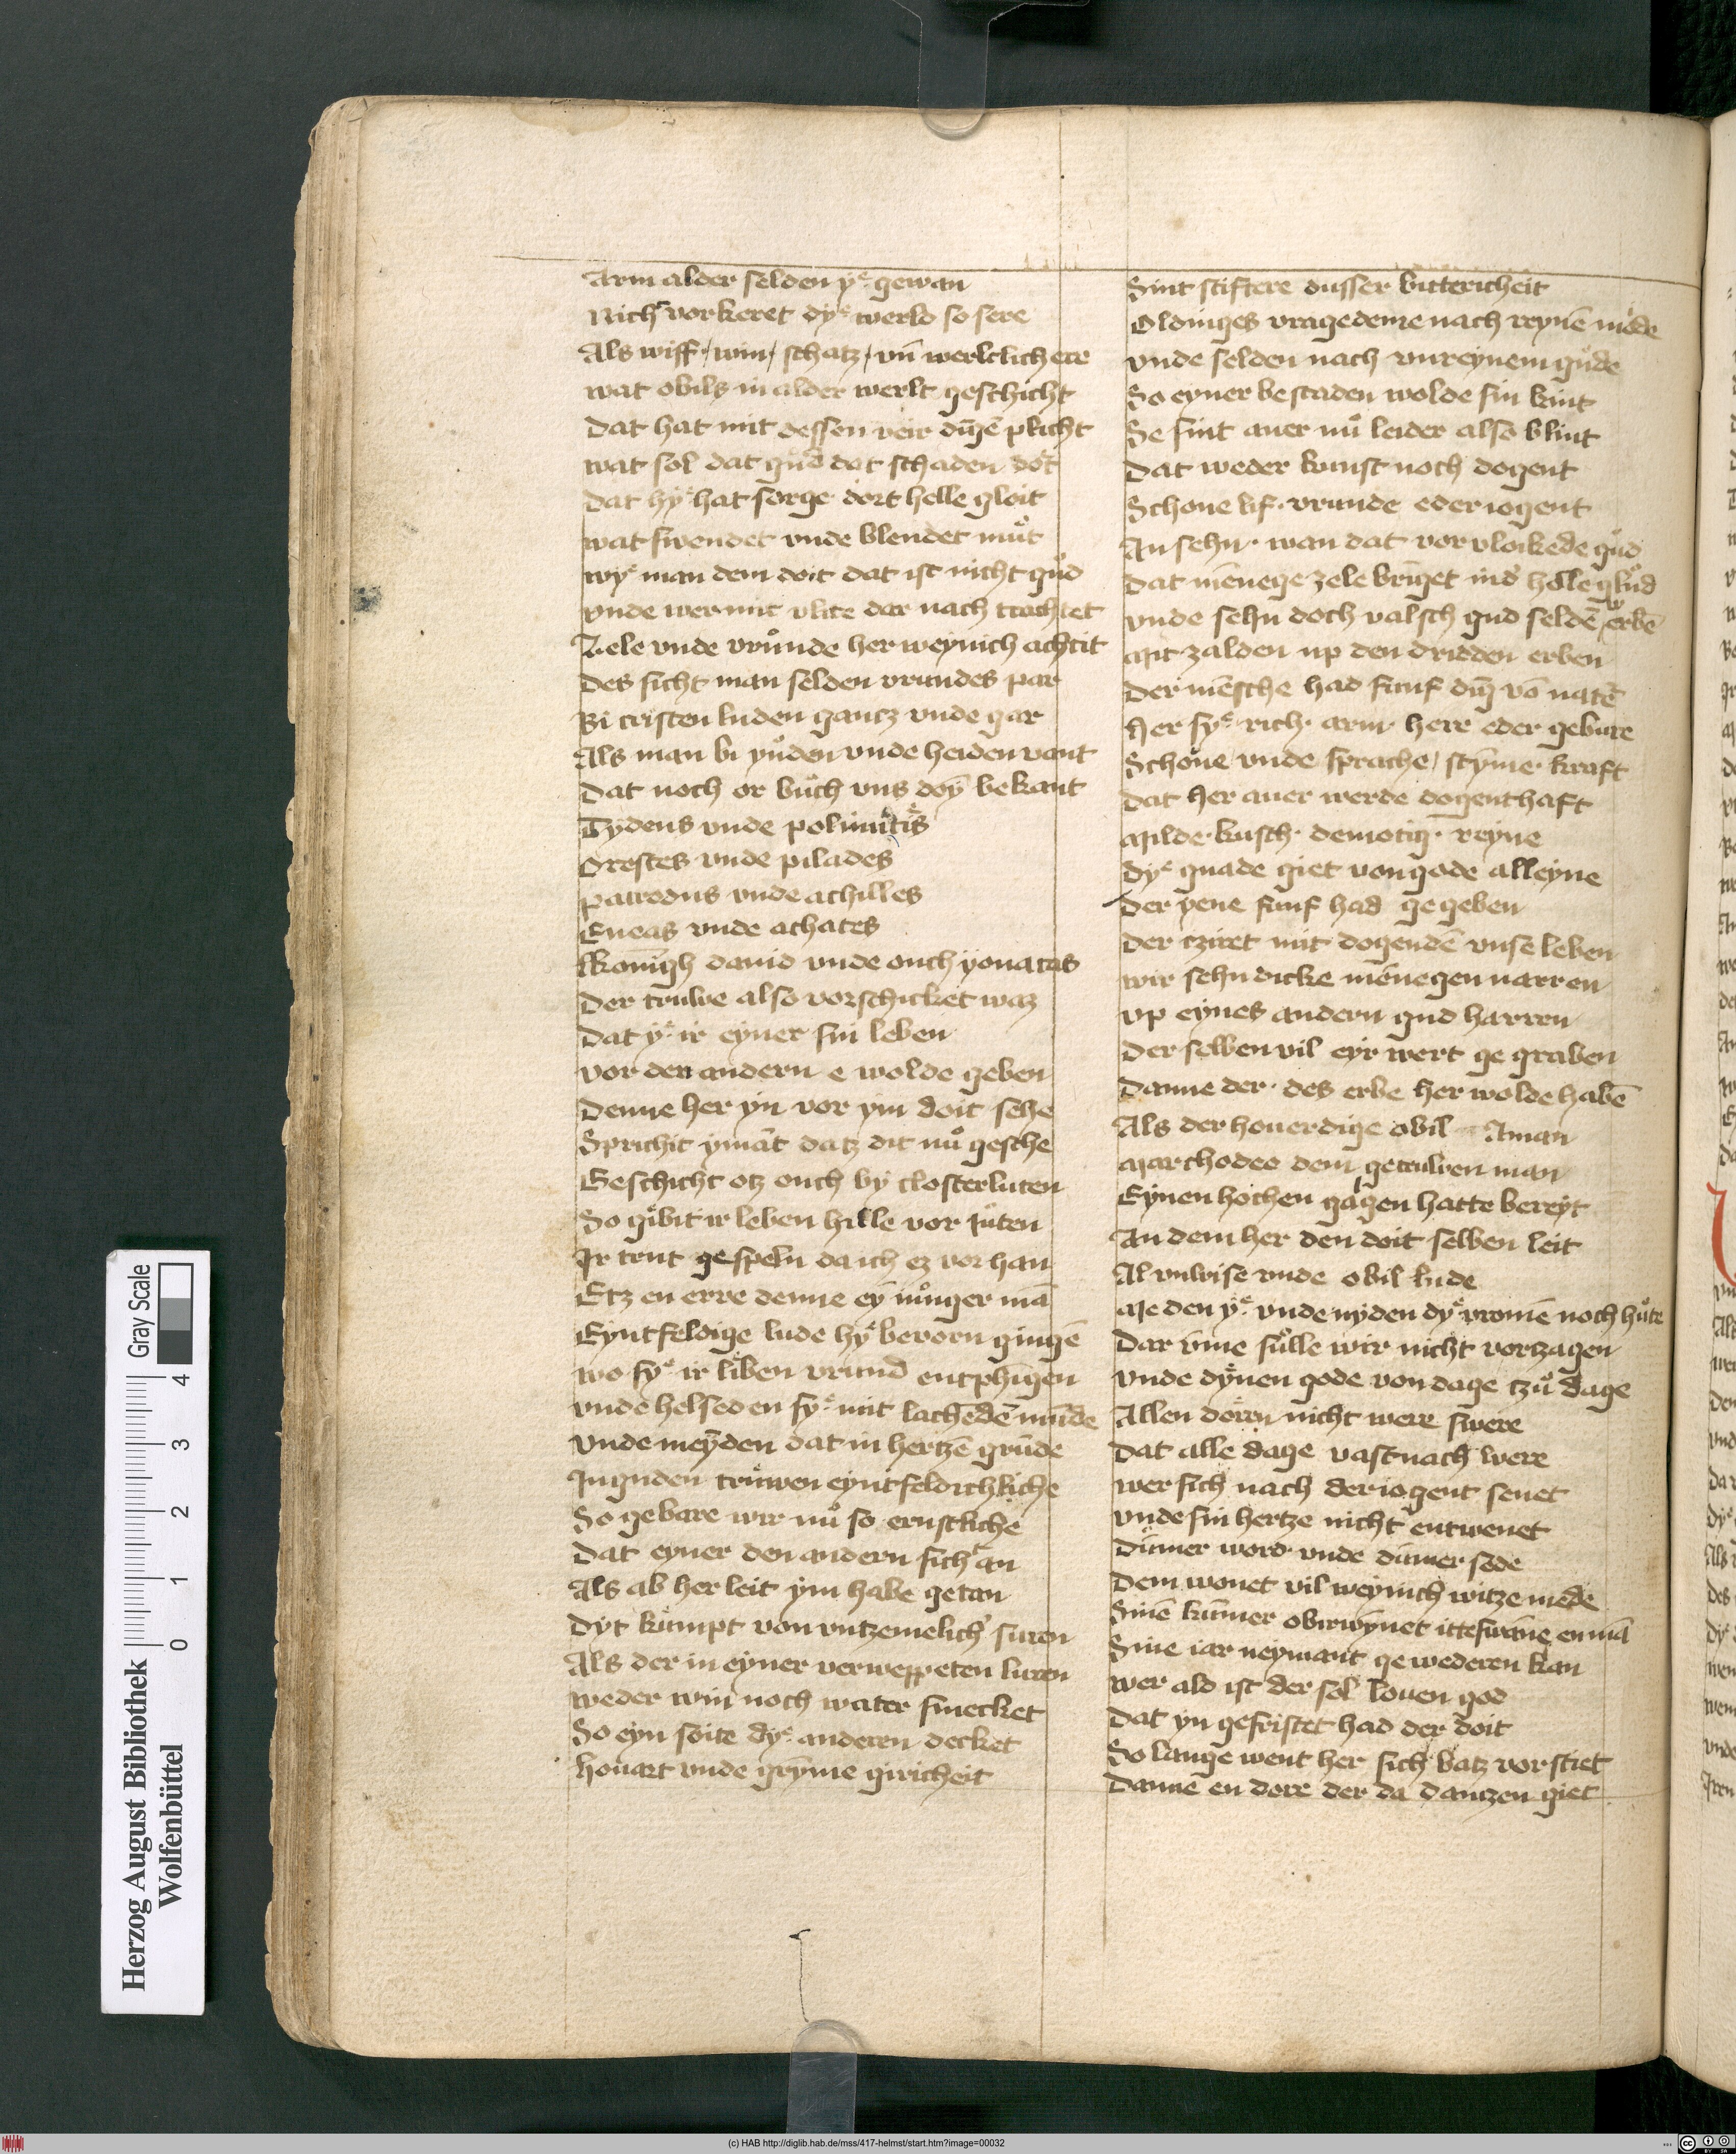 Arm alder selden yͤ gewan
Nicht vorkeret dyͤ werld so sere
Als wiff / win / schatz / vn̄ werltlich ere
wat obils in alder werlt geschicht
Dat hat mit dessen veir dīgē plicht
wat sol dat gůd dat schaden dot
Dat hyͤ hat sorge dort helle gloit
wat swendet vnde blendet můt
wyͤ man dem doit dat ist nicht gůd
vnde wer mit vlite dar nach trachtet
Zele vnde vrůnde her weynich achtit
Des sicht man selden vrundes par
Bi cristen luden gantz vnde gar
Als man bi yůden vnde heiden vant
Dat noch or bůch vns doy̅ bekant
Tydeus vnde polimites
Orestes vnde pilades
Patrodus vnde achilles
Eneas vnde achates
Konīgh dauid vnde ouch yonatas
Der truwe also vorschicket waz
Dat yͤ ir eyner sin leben
vor den andern e wolde geben
Denne her yn vor ym doit sehe
Sprichit ymāt datz dit nů gesche
Geschicht otz ouch by closterluten
So gibit ir leben hille vor luten
Ir trut gespeln da ich ez vor han
Etz en erre denne ey̅ iůnger mā
Eyntfeldige lude hyͤ beuorn gingē
wo syͤ ir liben vrund entphīgen
vnde helseden syͤ mit lachēdē mūde
vnde meyden dat in hertzē grūde
In guden truwen eyntfeldichliche
So gebare wir nů so ernstliche
Dat eyner den andern sicht an
Als ab her leit ym habe getan
Dyt kumpt von vntzemelich' suren
Als der in eyner verweppeten luren
weder win noch water smecket
So eyn soite dyͤ anderen decket
Houart vnde gry̅me giricheit
Sint stiftere dusser bittericheit
Oldinges vragede me nach reynē můde
vnde selden nach vnreynem gůde
So eyner bestaden wolde sin kint
Se sint auer nů leider also blint
Dat weder kunst noch dogent
Schone lif vrunde eder iogent
An sehn wan dat vor vloikede gůd
Dat mēnege zele brīget in d' helle glůd
vnde sehn doch valsch gud seldē werbē
Mit zalden up den dridden erben
Der mēsche had funf dīg vō natē
Her syͤ rich arm here eder gebure
Schone vnde sprache / sty̅me kraft
Dat her auer werde dogenthaft
Milde kusch demotig reyne
Dyͤ gnade giet von gode alleyne
Der yene funf had gegeben
Der tziret mit dogendē vnse leben
wir sehn dicke mēnegen narren
vp eynes andern gud harren
Der selben vil eyr wert ge graben
Danne der des erbe her wolde habē
Als der houerdige obil Aman
Marthodeo dem getruwen man
Eynen hochen galgen hatte bereyt
An dem her den doit selben leit
Al vnwise vnde obil lude
Meden yͤ vnde nyden dyͤ vromē noch hůte
Dar v̄me sulle wir nicht vortzagen
vnde dynen gode von dage tzů dage
Allen doren nicht were swere
Dat alle dage vastnach were
wer sich nach der iogent senet
vnde sin hertze nicht entwenet
Dūmer word vnde dūmer sede
Dem wonet vil weynich witze mede
Sinē kūmer obirwynet itteswāne en mā
Sine iar neymant gewederen kan
wer ald ist der sol louen god
Dat yn gefristet had der doit
So lange went her sich batz vorstiet
Danne en dore der da dantzen giet
Herzog August Bibliothek
Wolfenbüttel
Gray Scale
0 1 2 3 4
(c) HAB http://diglib.hab.de/mss/417-helmst/start.htm?image=00032